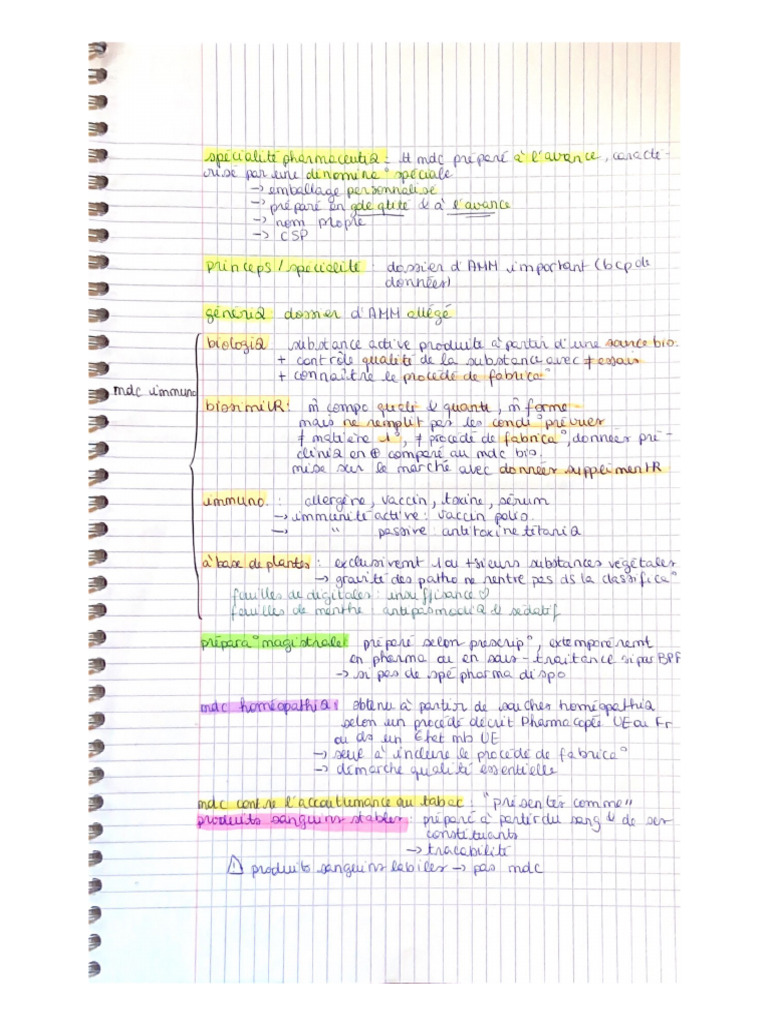 spécialité pharmaceutiQ : tt mdc préparé à l'avance, caracté-
risé par une dénomina° spéciale
→ emballage personnalisé
→ préparé en gde qtité & à l'avance
→ nom propre
→ CSP
princeps / spécialité : dossier d'AMM important (bcp de
données)
génériQ : dossier d'AMM allégé
biologiQ substance active produite à partir d'une source bio.
+ contrôle qualité de la substance avec ≠ essais
+ connaître le procédé de fabrica°
mdc immuno
biosimilR : m̂ compo quali & quanti, m̂ forme
mais ne remplit pas les condi° prévues
≠ matière 1°, ≠ procédé de fabrica°, données pré-
cliniQ en ⊕ comparé au mdc bio.
mise sur le marché avec données supplémentR
immuno. : allergène, vaccin, toxine, sérum
→ immunité active : vaccin polio.
→ " passive : antitoxine titaniQ
à base de plantes : exclusivemt 1 ou +sieurs substances végétales
→ gravité des patho ne rentre pas ds la classifica°
feuilles de digitales : insuffisance ♡
feuilles de menthe : antispasmodiQ & sédatif
prépara° magistrale : préparé selon prescrip°, extemporémt
en pharma ou en sous-traitance si par BPF
→ si pas de spé pharma dispo
mdc homéopathiQ : obtenu à partir de souches homéopathiQ
selon un procédé décrit Pharmacopée UE ou Fr
ou ds un État mb UE
→ seul à inclure le procédé de fabrica°
→ démarche qualité essentielle
mdc contre l'accoutumance au tabac : "présenter comme"
produits sanguins stables : préparé à partir du sang & de ses
constituants
→ tracabilité
⚠ produits sanguins labiles → pas mdc